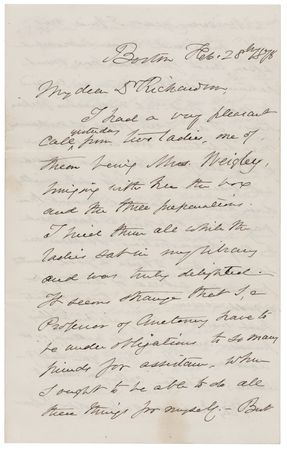 Boston Feb. 28th 1878
My dear Dr Richardson,
I had a very pleasant
yesterday
call from two ladies, one of
them being Mrs. Weigley,
bringing with her the box
and the three preparations.
I tried them all while the
ladies sat in my library
and was truly delighted.
It seems strange that I, a
Professor of Anatomy have to
be under obligations to so many
friends for assistance, when
I ought to be able to do all
these things for myself. – But